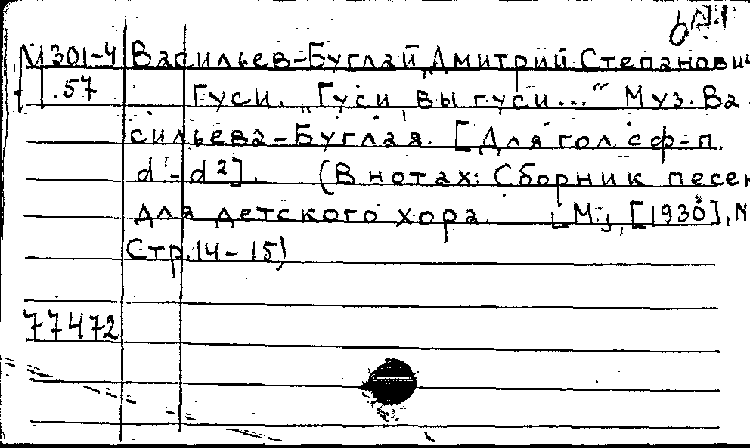 М 301-4 Васильев-Буглай, Дмитрий Степанович
1.57 Гуси. "Гуси вы гуси..." Муз. Ва-
сильева-Буглая. [Для гол. с ф-п.
d¹-d²]. (В нотах: Сборник песен
для детского хора. [М.], [1930], №
Стр. 14-15)
77472